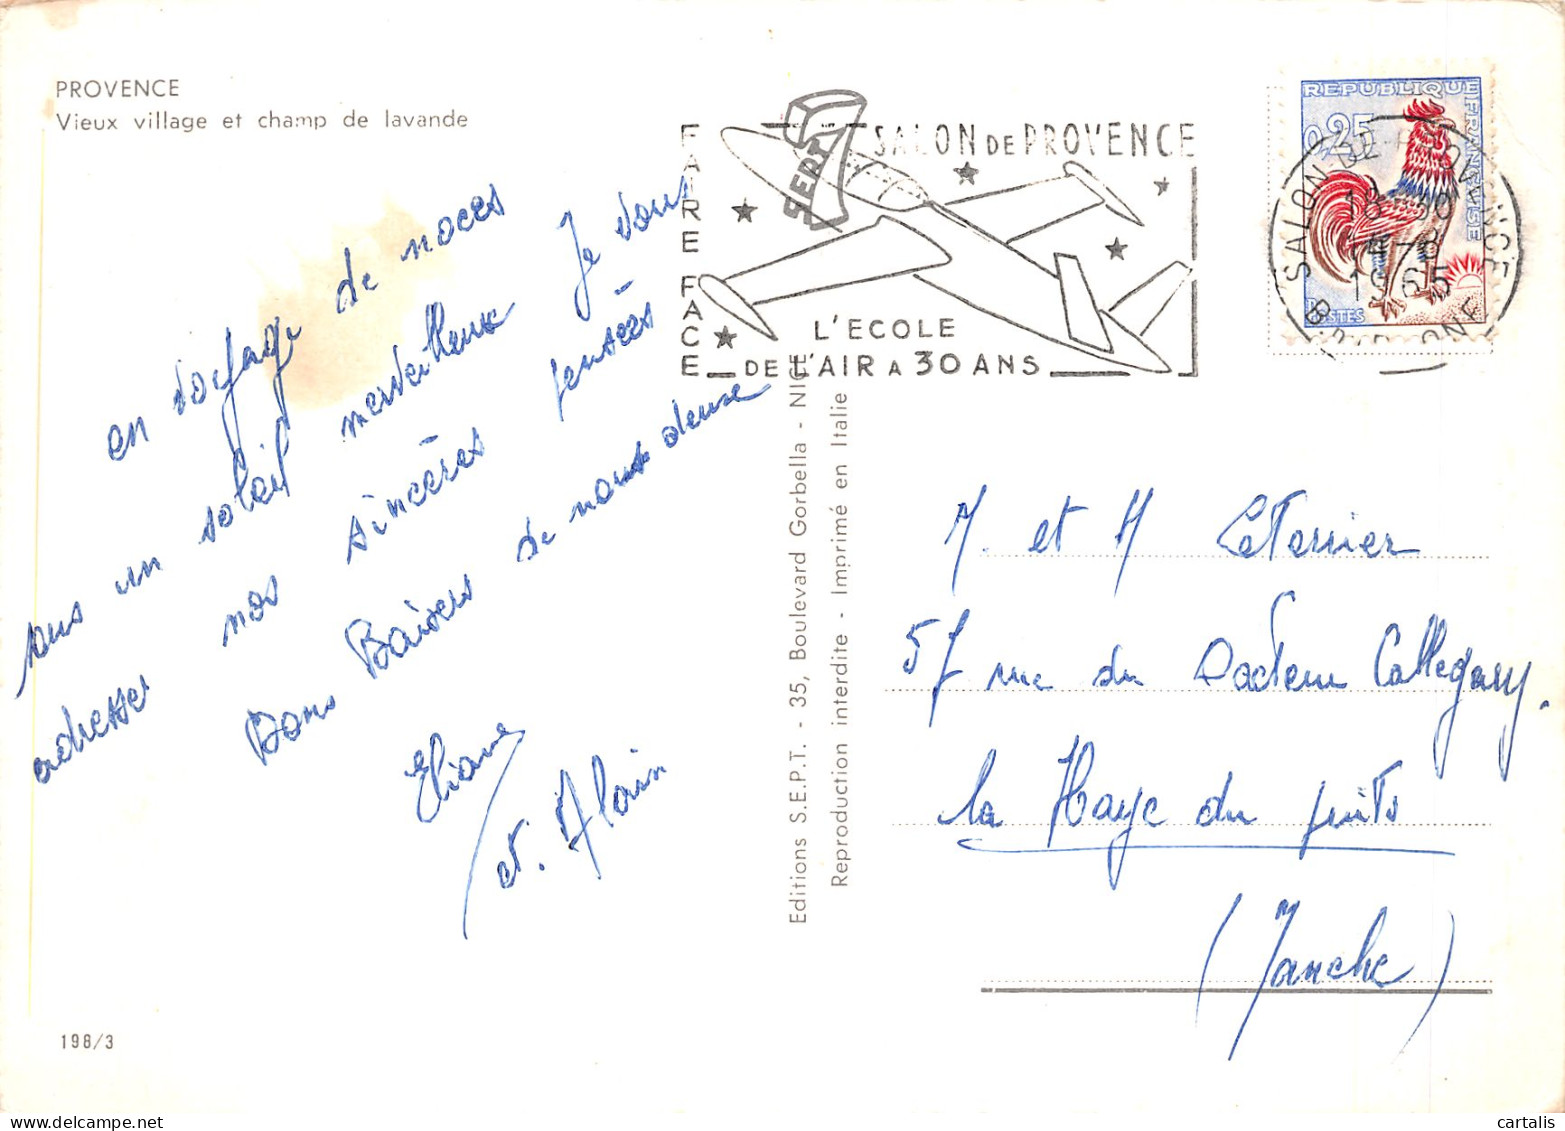 PROVENCE
Vieux village et champ de lavande
en voyage de noces
sous un soleil merveilleux Je vous
adresse nos sincères pensées
Bons Baisers de nous deux
Eliane
et. Alain
198/3
Editions S.E.P.T. - 35, Boulevard Gorbella - NICE
Reproduction interdite - Imprimé en Italie
FAIRE FACE
SALON DE PROVENCE
L'ECOLE
DE L'AIR A 30 ANS
REPUBLIQUE FRANÇAISE
0,25
POSTES
SALON-DE-PROVENCE
18 30
14-8
1965
B. DU RHONE
M. et M LeTerrier
57 rue du Docteur Callegary.
la Haye du puits
(Manche)
cartalis